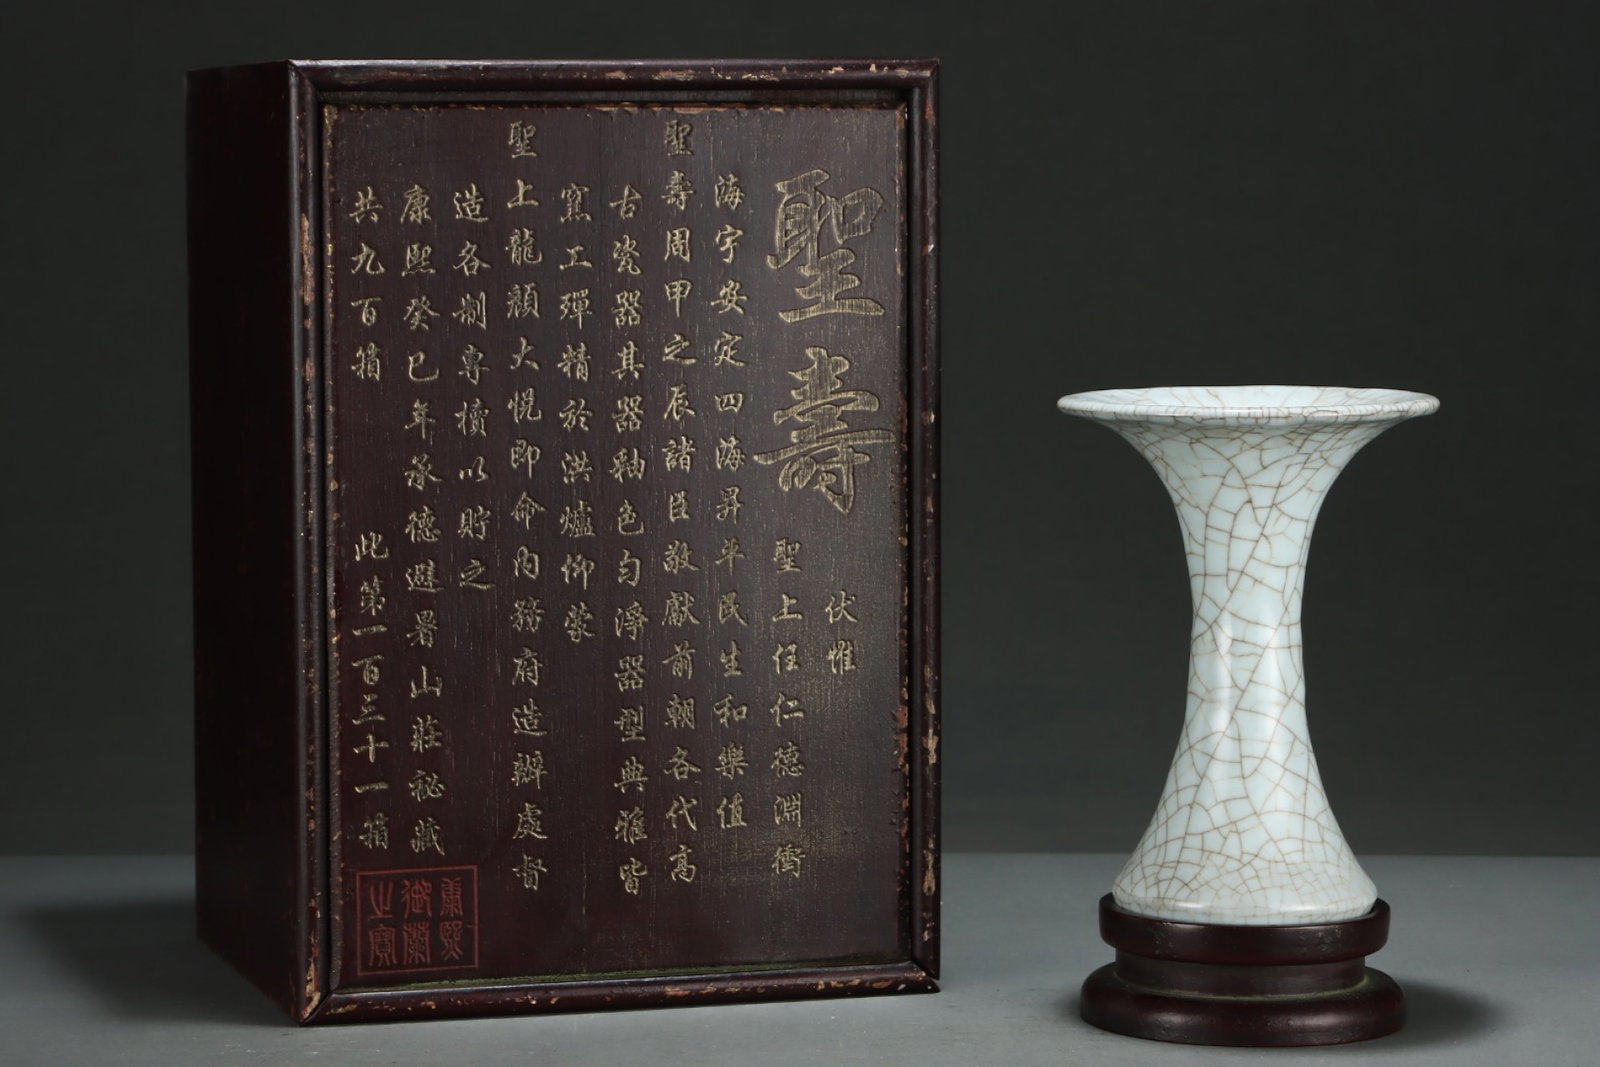 聖壽
伏惟
聖上任仁德淵衝
海宇安定四海昇平民生和樂值
聖壽周甲之辰諸臣敬獻前朝各代高
古瓷器其器釉色勻淨器型典雅皆
窯工殫精於洪爐仰蒙
聖上龍顏大悅即命內務府造辦處督
造各制專櫝以貯之
康熙癸巳年承德避暑山莊秘藏
共九百箱 此第一百三十一箱
康熙
御蘭
之寶